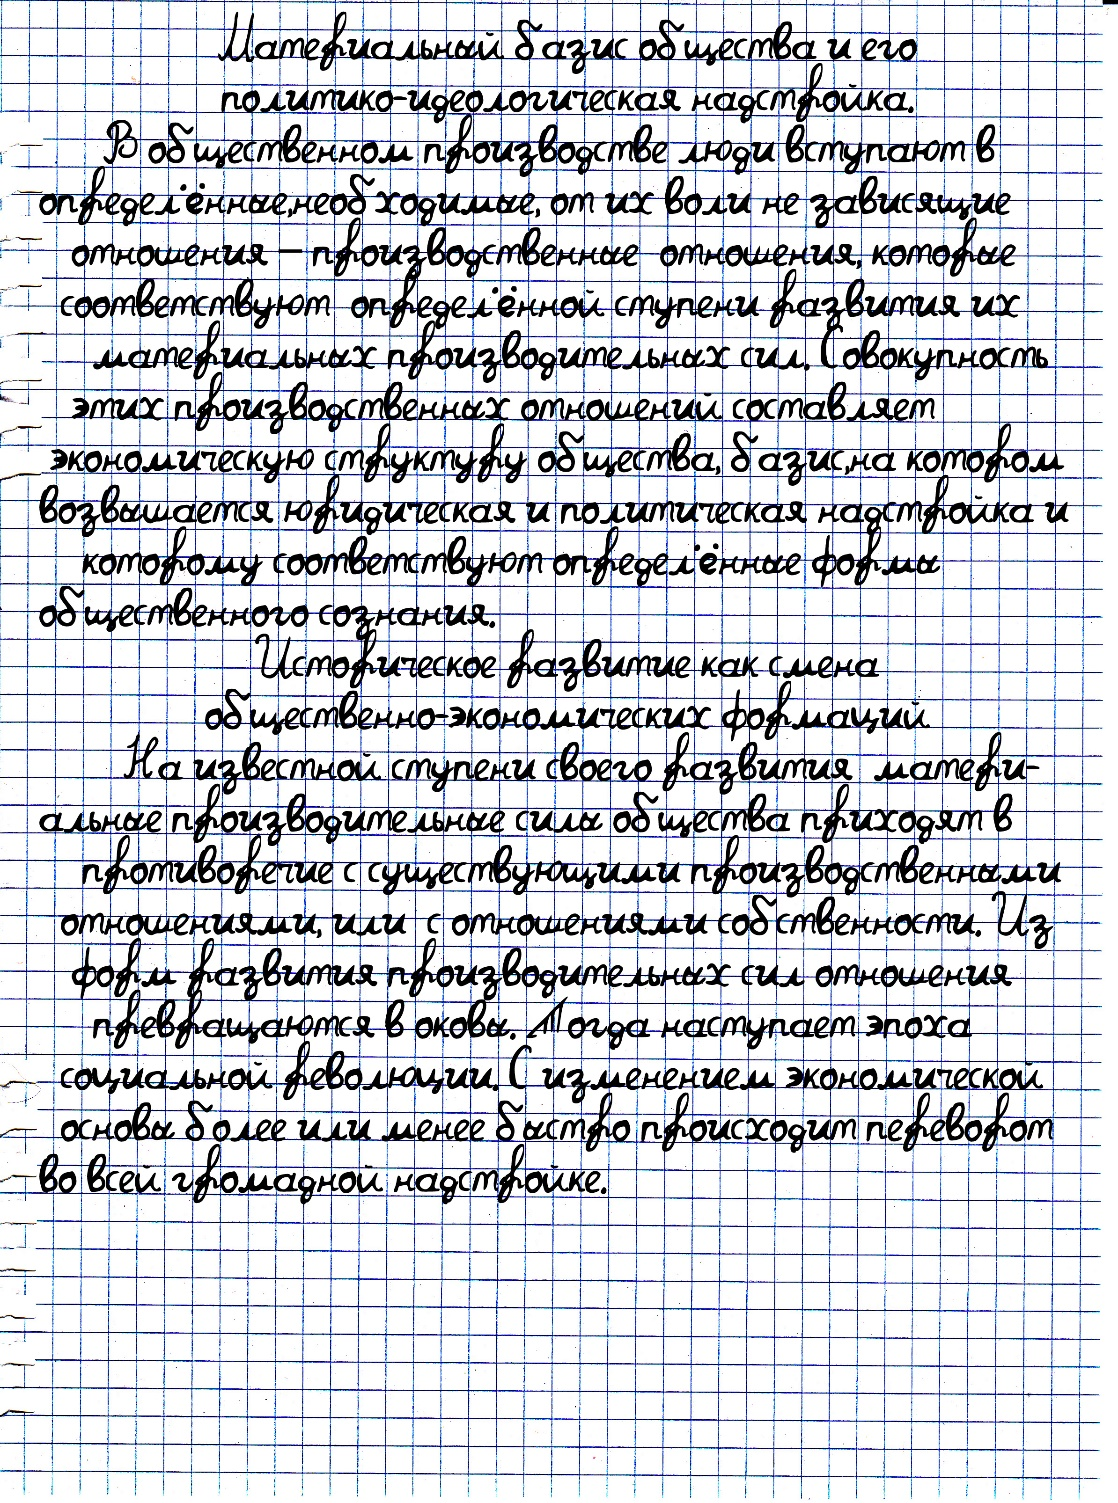 Материальный базис общества и его
политико-идеологическая надстройка.
В общественном производстве люди вступают в
определённые, необходимые, от их воли не зависящие
отношения — производственные отношения, которые
соответствуют определённой ступени развития их
материальных производительных сил. Совокупность
этих производственных отношений составляет
экономическую структуру общества, базис, на котором
возвышается юридическая и политическая надстройка и
которому соответствуют определённые формы
общественного сознания.
Историческое развитие как смена
общественно-экономических формаций.
На известной ступени своего развития матери-
альные производительные силы общества приходят в
противоречие с существующими производственными
отношениями, или с отношениями собственности. Из
форм развития производительных сил отношения
превращаются в оковы. Тогда наступает эпоха
социальной революции. С изменением экономической
основы более или менее быстро происходит переворот
во всей громадной надстройке.